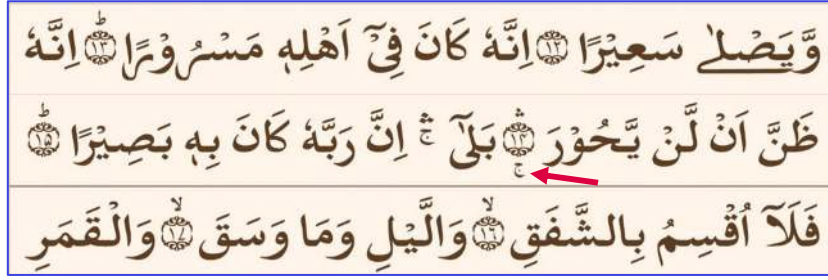 وَّيَصْلٰى سَعِيْرًا ۝۱۲ اِنَّهٗ كَانَ فِيْۤ اَهْلِهٖ مَسْرُوْرًا ۝۱۳ؕ اِنَّهٗ
ظَنَّ اَنْ لَّنْ يَّحُوْرَ ۝۱۴ۛۚ بَلٰىۤ ۛۚ اِنَّ رَبَّهٗ كَانَ بِهٖ بَصِيْرًا ۝۱۵ؕ
فَلَاۤ اُقْسِمُ بِالشَّفَقِ ۝۱۶ۙ وَالَّيْلِ وَمَا وَسَقَ ۝۱۷ۙ وَالْقَمَرِ